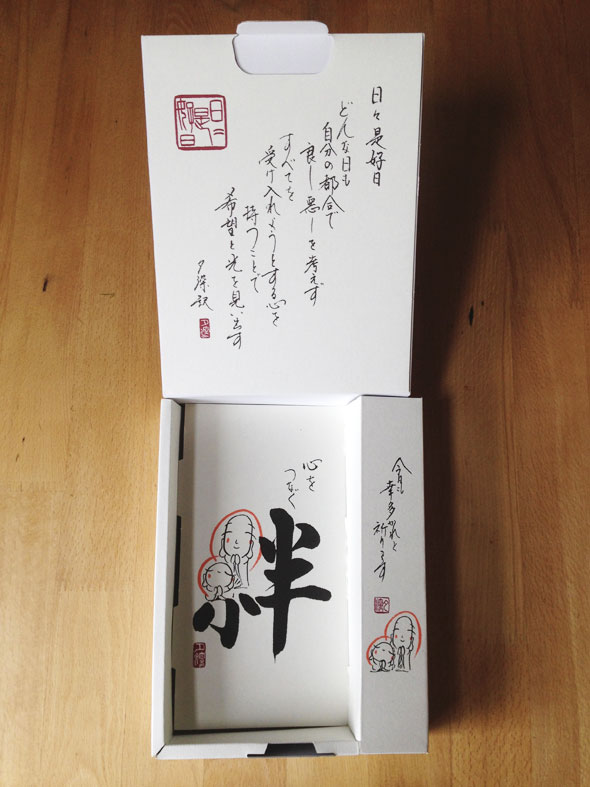 日々是好日
どんな日も
自分の都合で
良し悪しを考えず
すべてを
受け入れようとする心を
持つことで
希望と光を見い出す
日々是好日
心を
つなぐ
絆
今日も
幸多かれと
祈ります